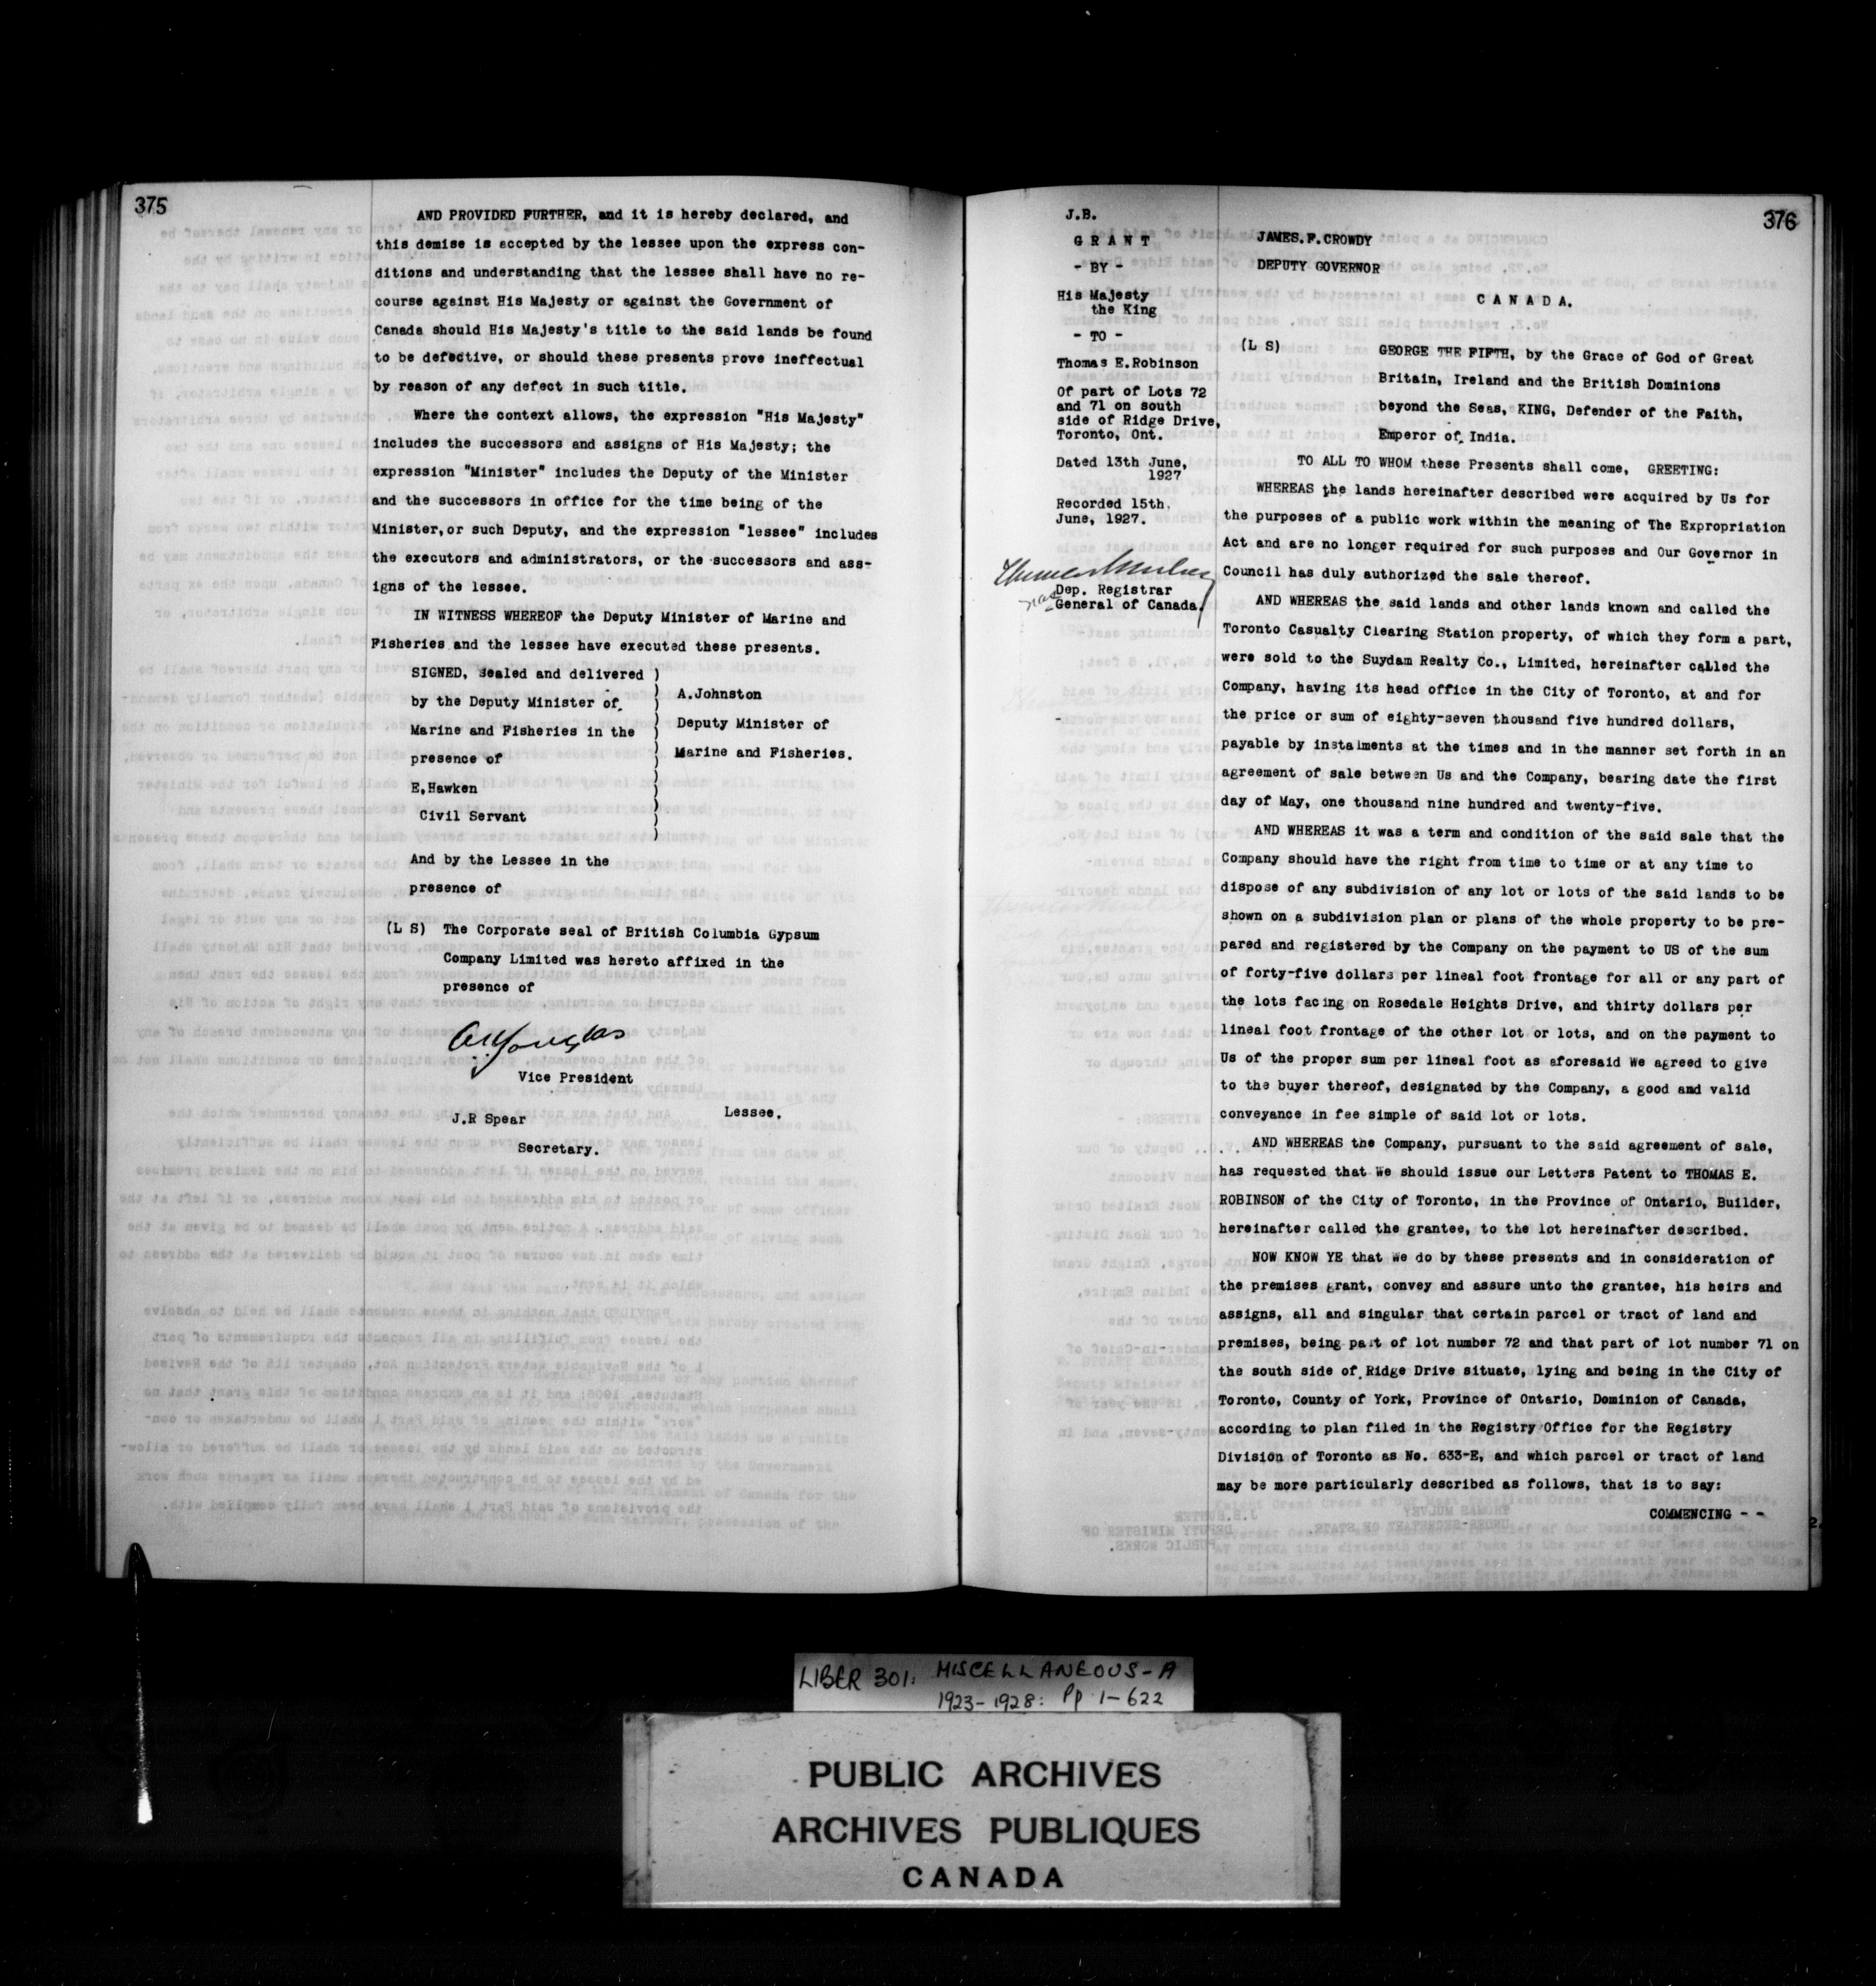 375
AND PROVIDED FURTHER, and it is hereby declared, and
this demise is accepted by the lessee upon the express con-
ditions and understanding that the lessee shall have no re-
course against His Majesty or against the Government of
Canada should His Majesty's title to the said lands be found
to be defective, or should these presents prove ineffectual
by reason of any defect in such title.
Where the context allows, the expression "His Majesty"
includes the successors and assigns of His Majesty; the
expression "Minister" includes the Deputy of the Minister
and the successors in office for the time being of the
Minister,or such Deputy, and the expression "lessee" includes
the executors and administrators, or the successors and ass-
igns of the lessee.
IN WITNESS WHEREOF the Deputy Minister of Marine and
Fisheries and the lessee have executed these presents.
SIGNED, sealed and delivered )
by the Deputy Minister of
Marine and Fisheries in the
presence of
E,Hawken
Civil Servant
A.Johnston
Deputy Minister of
Marine and Fisheries.
And by the Lessee in the
presence of
(L S) The Corporate seal of British Columbia Gypsum
Company Limited was hereto affixed in the
presence of
Vice President
Lessee.
J.R Spear
Secretary.
376
J.B.
G R A N T
- BY -
His Majesty
the King
- TO -
Thomas E.Robinson
Of part of Lots 72
and 71 on south
side of Ridge Drive,
Toronto, Ont.
Dated 13th June,
1927
Recorded 15th
June, 1927.
Dep. Registrar
General of Canada.
JAMES.F.CROWDY
DEPUTY GOVERNOR
C A N A D A.
(L S)
GEORGE THE FIFTH, by the Grace of God of Great
Britain, Ireland and the British Dominions
beyond the Seas, KING, Defender of the Faith,
Emperor of India.
TO ALL TO WHOM these Presents shall come, GREETING:
WHEREAS the lands hereinafter described were acquired by Us for
the purposes of a public work within the meaning of The Expropriation
Act and are no longer required for such purposes and Our Governor in
Council has duly authorized the sale thereof.
AND WHEREAS the said lands and other lands known and called the
Toronto Casualty Clearing Station property, of which they form a part,
were sold to the Suydam Realty Co., Limited, hereinafter called the
Company, having its head office in the City of Toronto, at and for
the price or sum of eighty-seven thousand five hundred dollars,
payable by instalments at the times and in the manner set forth in an
agreement of sale between Us and the Company, bearing date the first
day of May, one thousand nine hundred and twenty-five.
AND WHEREAS it was a term and condition of the said sale that the
Company should have the right from time to time or at any time to
dispose of any subdivision of any lot or lots of the said lands to be
shown on a subdivision plan or plans of the whole property to be pre-
pared and registered by the Company on the payment to US of the sum
of forty-five dollars per lineal foot frontage for all or any part of
the lots facing on Rosedale Heights Drive, and thirty dollars per
lineal foot frontage of the other lot or lots, and on the payment to
Us of the proper sum per lineal foot as aforesaid We agreed to give
to the buyer thereof, designated by the Company, a good and valid
conveyance in fee simple of said lot or lots.
AND WHEREAS the Company, pursuant to the said agreement of sale,
has requested that We should issue our Letters Patent to THOMAS E.
ROBINSON of the City of Toronto, in the Province of Ontario, Builder,
hereinafter called the grantee, to the lot hereinafter described.
NOW KNOW YE that We do by these presents and in consideration of
the premises grant, convey and assure unto the grantee, his heirs and
assigns, all and singular that certain parcel or tract of land and
premises, being part of lot number 72 and that part of lot number 71 on
the south side of Ridge Drive situate, lying and being in the City of
Toronto, County of York, Province of Ontario, Dominion of Canada,
according to plan filed in the Registry Office for the Registry
Division of Toronto as No. 633-E, and which parcel or tract of land
may be more particularly described as follows, that is to say:
COMMENCING - -
LIBER 301. MISCELLANEOUS-A
1923-1928: Pp 1-622
PUBLIC ARCHIVES
ARCHIVES PUBLIQUES
CANADA